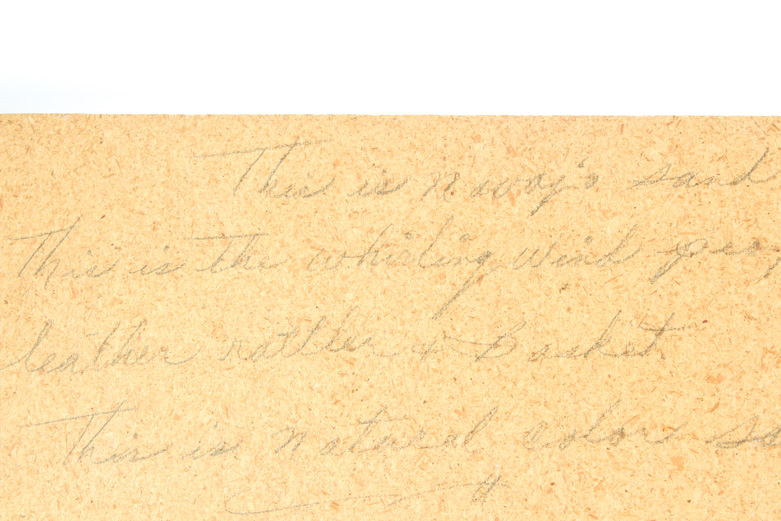 This is navajo sand
This is the whirling wind peop
leather rattler & Basket
This is natural color sa